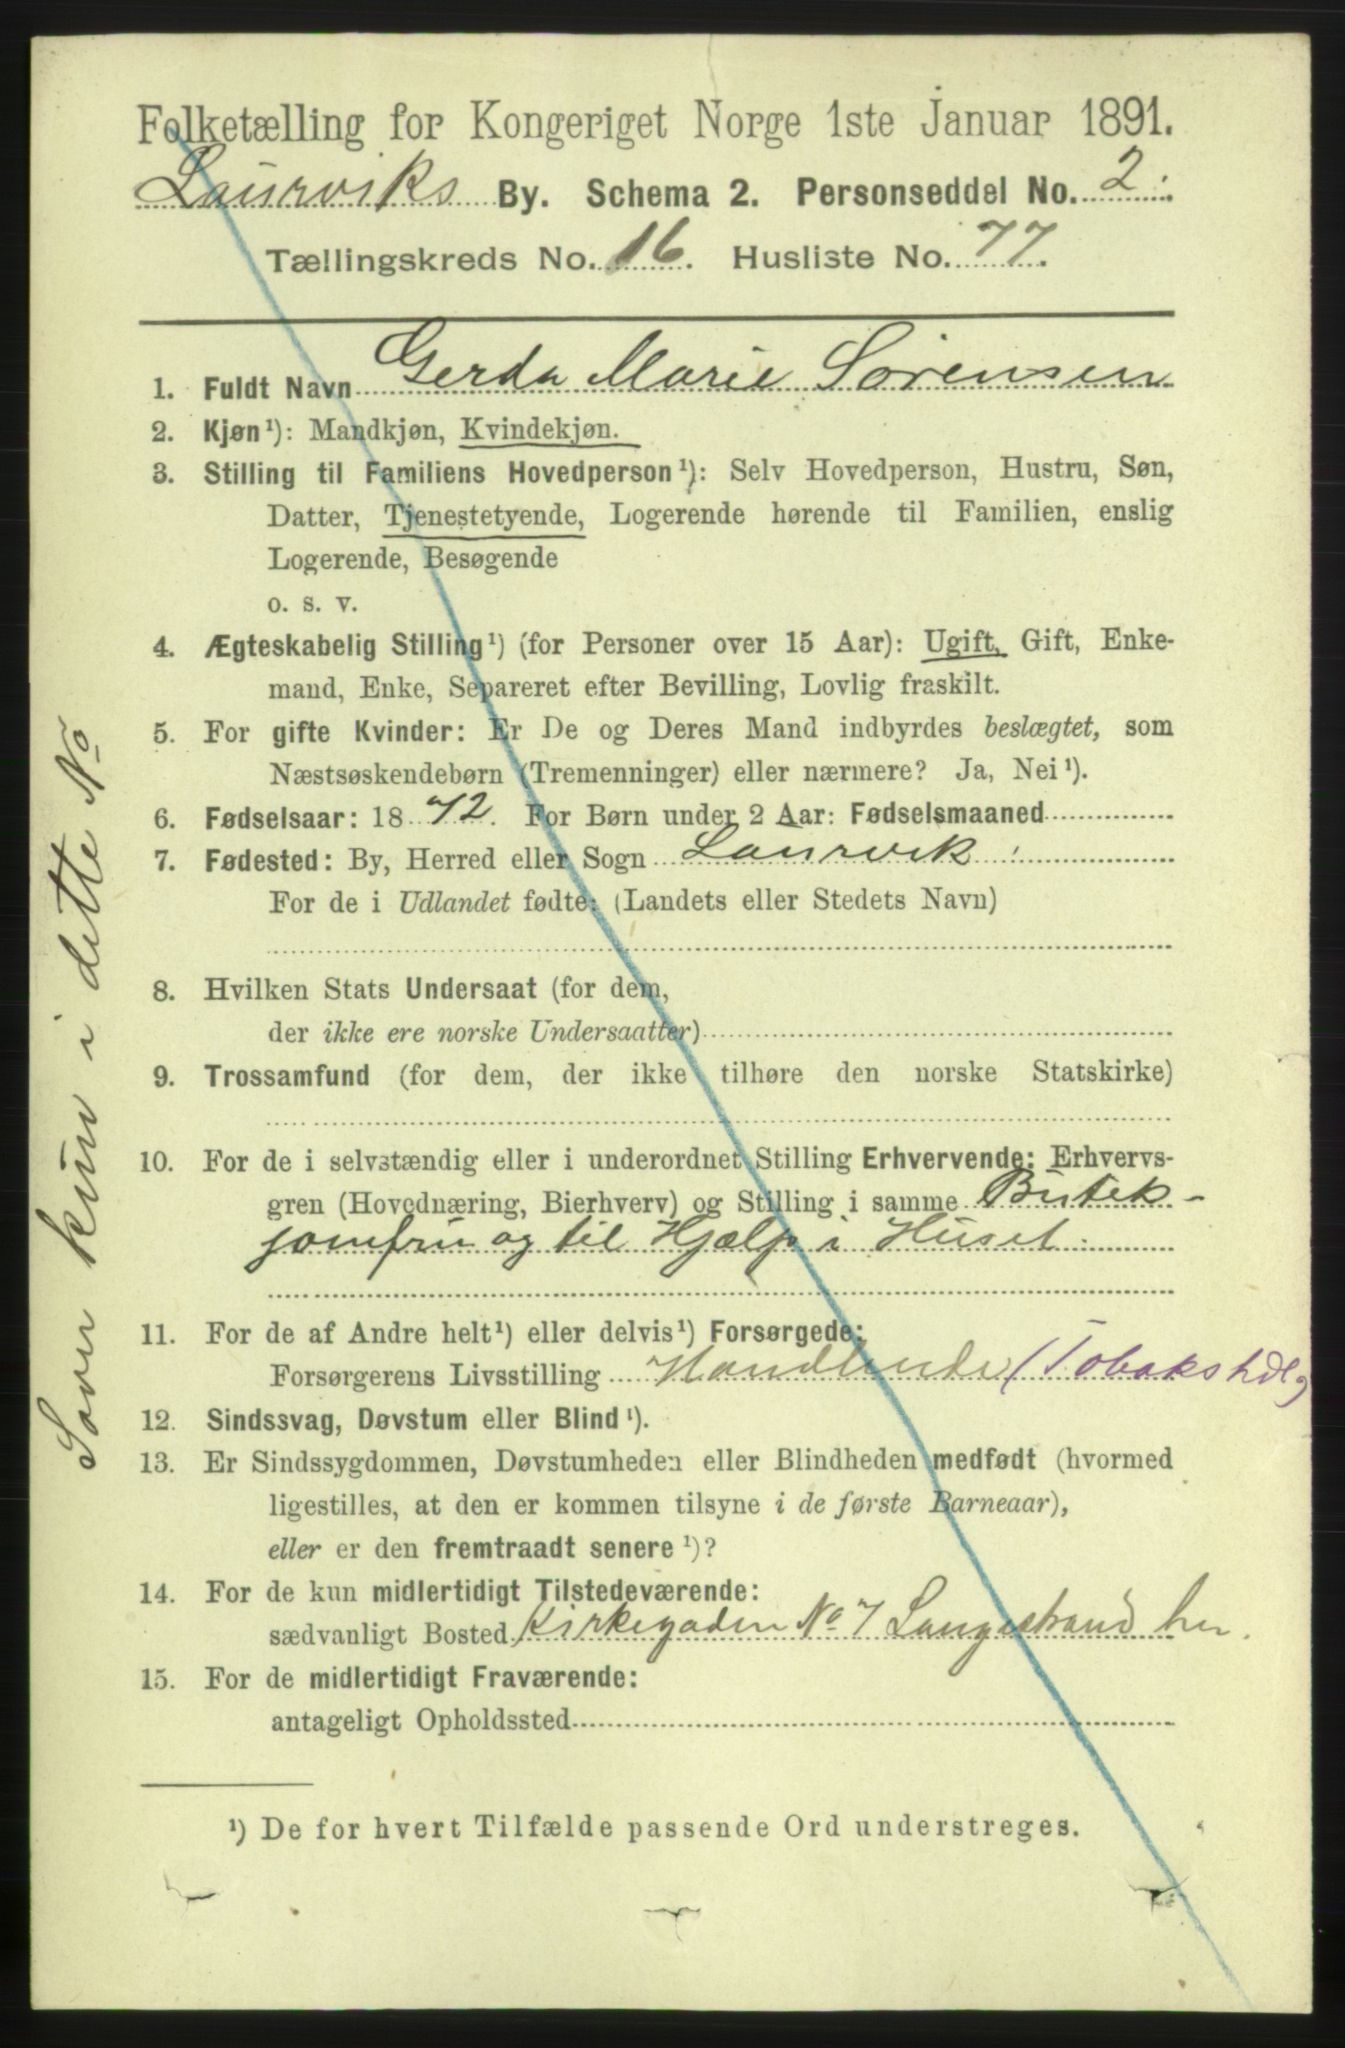 Folketælling for Kongeriget Norge 1ste Januar 1891.
Laurviks By. Schema 2. Personseddel No. 2.
Tællingskreds No. 16. Husliste No. 77.
1. Fuldt Navn Gerda Marie Sørensen
2. Kjøn¹): Mandkjøn, Kvindekjøn.
3. Stilling til Familiens Hovedperson¹): Selv Hovedperson, Hustru, Søn,
Datter, Tjenestetyende, Logerende hørende til Familien, enslig
Logerende, Besøgende
o. s. v.
4. Ægteskabelig Stilling¹) (for Personer over 15 Aar): Ugift, Gift, Enke-
mand, Enke, Separeret efter Bevilling, Lovlig fraskilt.
5. For gifte Kvinder: Er De og Deres Mand indbyrdes beslægtet, som
Næstsøskendebørn (Tremenninger) eller nærmere? Ja, Nei¹).
6. Fødselsaar: 1872. For Børn under 2 Aar: Fødselsmaaned
7. Fødested: By, Herred eller Sogn Laurvik
For de i Udlandet fødte: (Landets eller Stedets Navn)
8. Hvilken Stats Undersaat (for dem,
der ikke ere norske Undersaatter)
9. Trossamfund (for dem, der ikke tilhøre den norske Statskirke)
10. For de i selvstændig eller i underordnet Stilling Erhvervende: Erhvervs-
gren (Hovednæring, Bierhverv) og Stilling i samme Butek-
jomfru og til Hjælp i Huset.
11. For de af Andre helt¹) eller delvis¹) Forsørgede:
Forsørgerens Livsstilling Handlende (Tobakshdl)
12. Sindssvag, Døvstum eller Blind¹).
13. Er Sindssygdommen, Døvstumheden eller Blindheden medfødt (hvormed
ligestilles, at den er kommen tilsyne i de første Barneaar),
eller er den fremtraadt senere¹)?
14. For de kun midlertidigt Tilstedeværende:
sædvanligt Bosted Kirkegaden No 7 Langestrand her.
15. For de midlertidigt Fraværende:
antageligt Opholdssted
¹) De for hvert Tilfælde passende Ord understreges.
Sover kun i dette No